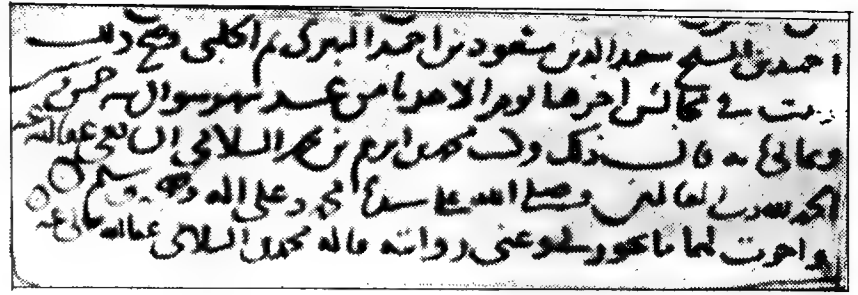 احمد بن الشيخ سعد الدين مسعود بن احمد ثم الحلبي وصح ذلك
في مجالس اخرها يوم الاحد ثامن شهر شوال سنة خمس
قال ذلك وكتب محمد بن ابرهيم بن محمد السلامي الشافعي عفا الله عنه
الحمد لله رب العالمين وصلى الله على سيدنا محمد وعلى اله وصحبه وسلم
واجزت لهما ما يجوز لي وعني روايته قاله محمد السلامي عفا الله تعالى عنه